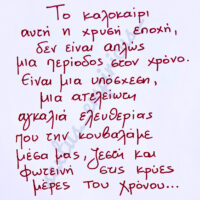 Το καλοκαίρι
αυτή η χρυσή εποχή,
δεν είναι απλώς
μια περίοδος στον χρόνο.
Είναι μια υπόσχεση,
μια ατελείωτη
αγκαλιά ελευθερίας
που την κουβαλάμε
μέσα μας, ζεστή και
φωτεινή στις κρύες
μέρες του χρόνου...